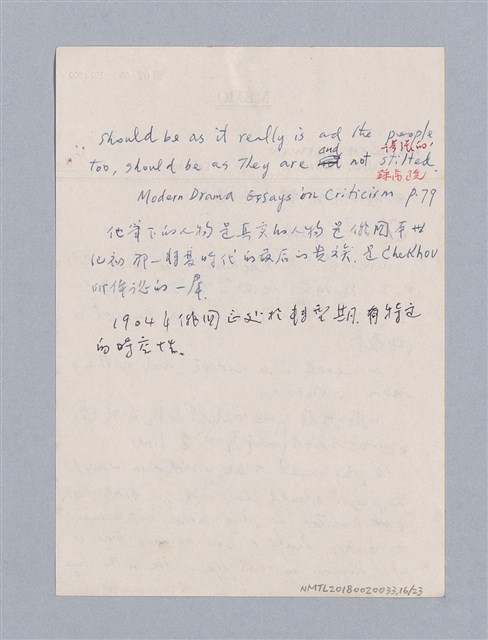 should be as it really is ad the people
too, should be as They are and not stilted.
Modern Drama Essays on Criticism p.79
他筆下的人物是真实的人物是俄國廿世
纪初那一轉變時代的最后的貴族.是Chekhov
所作谂的一群.
1904年俄國正处於轉型期.有特定
的時空性.
NMTL20180020033,16/23